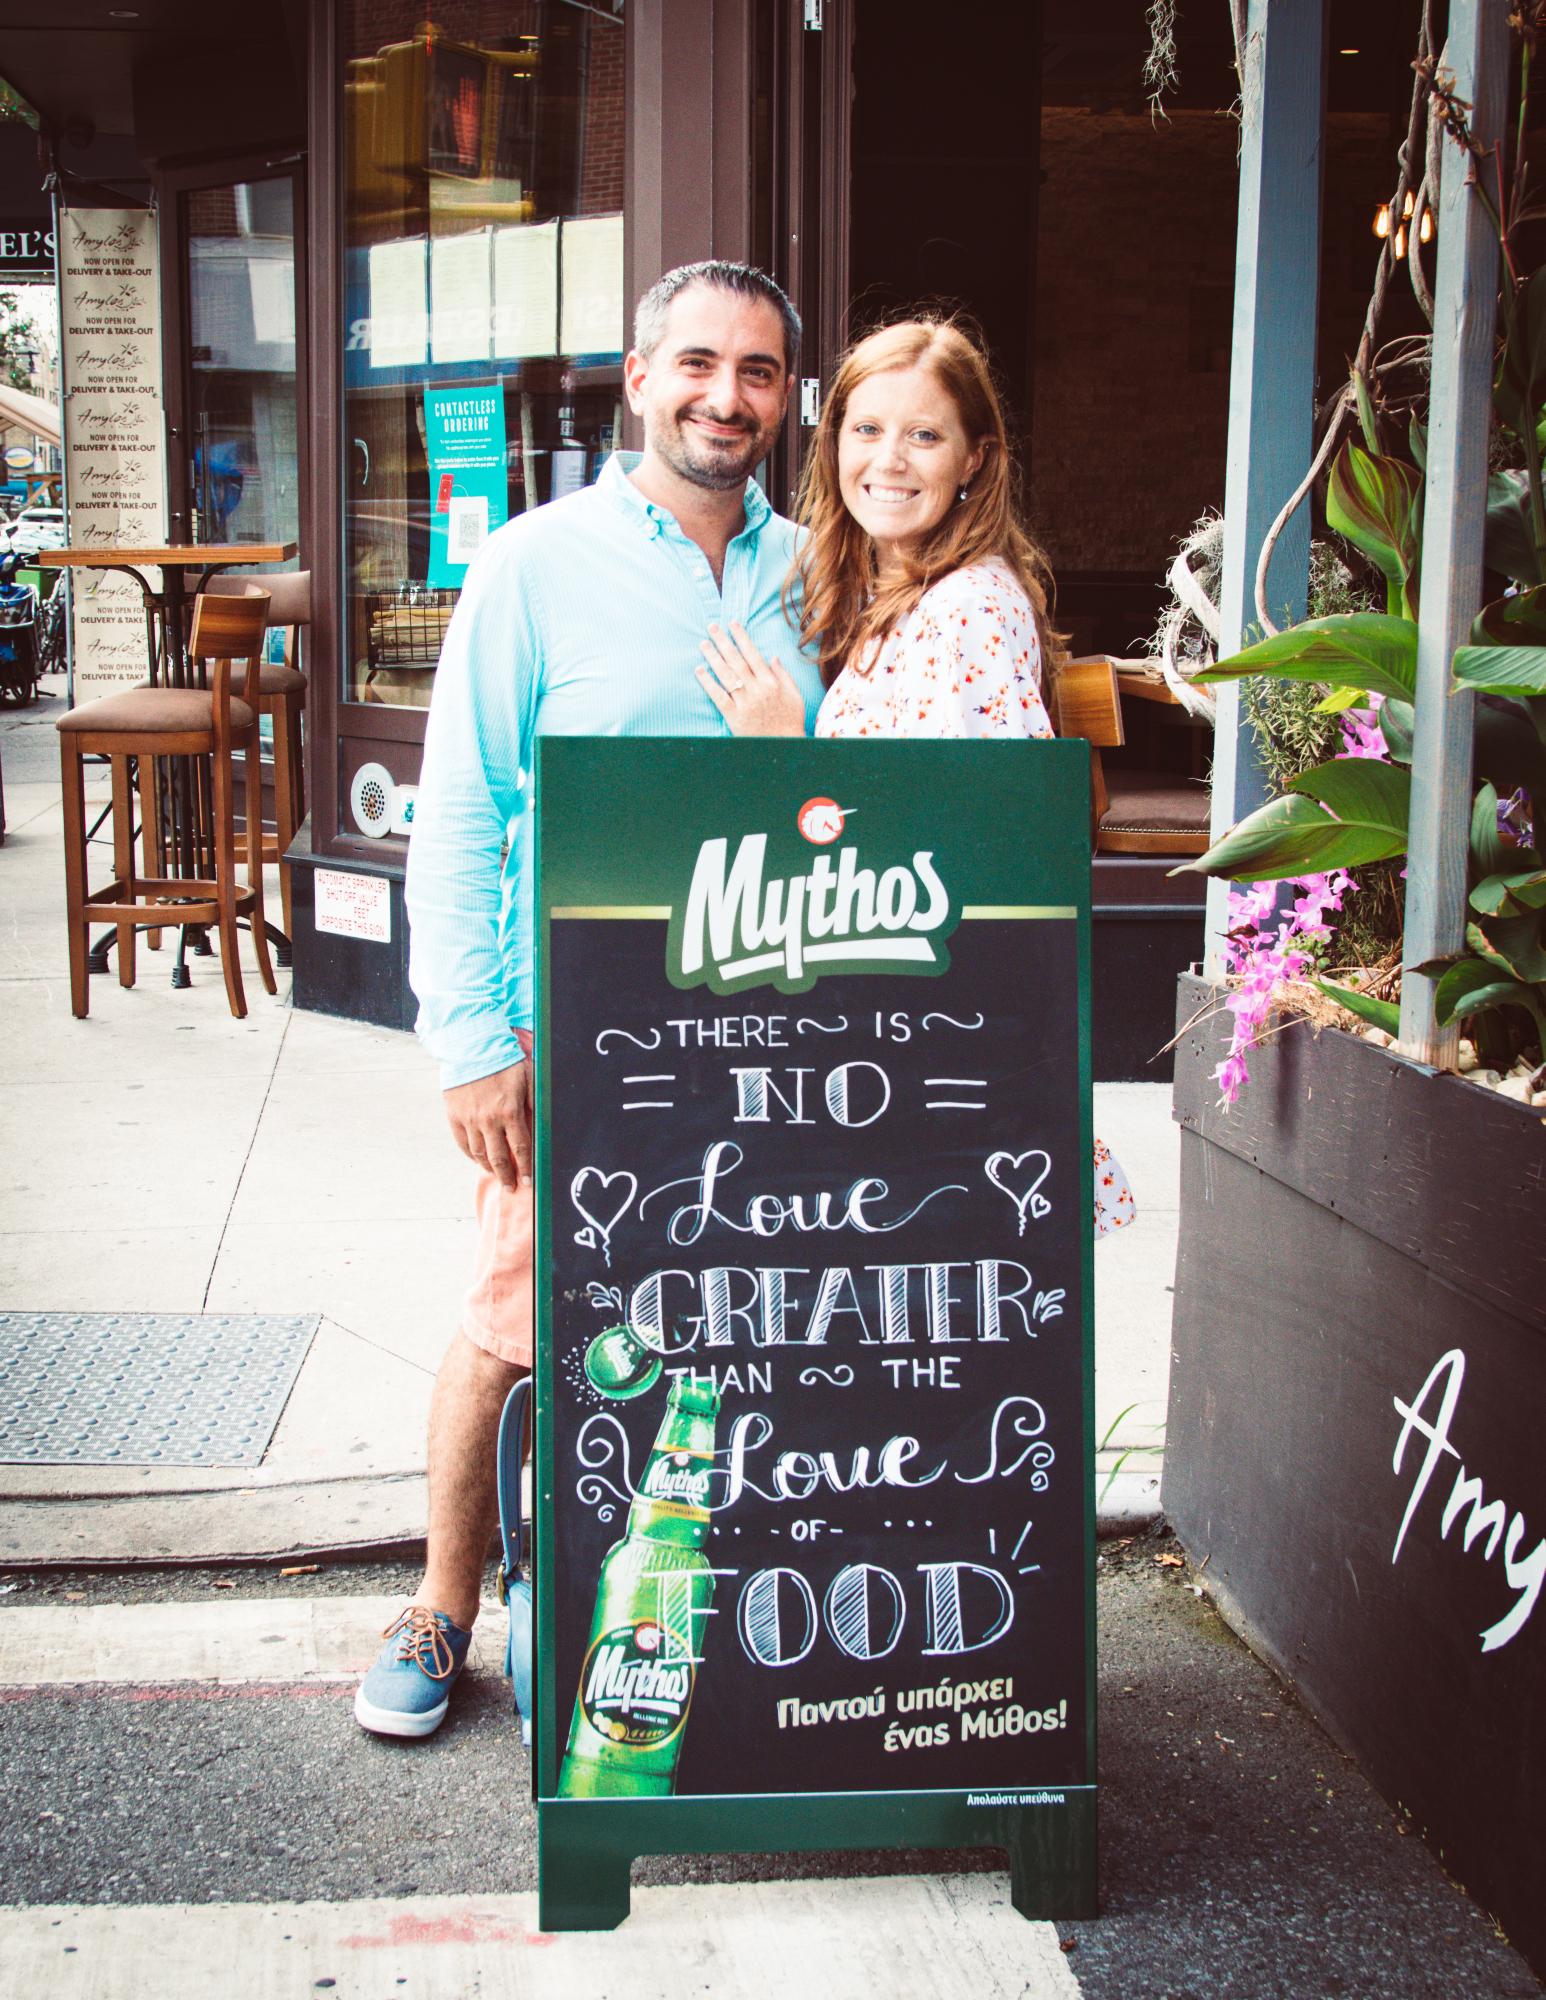 EL'S
Amylos
NOW OPEN FOR
DELIVERY & TAKE-OUT
Amylos
NOW OPEN FOR
DELIVERY & TAKE-OUT
Amylos
NOW OPEN FOR
DELIVERY & TAKE-OUT
Amylos
NOW OPEN FOR
DELIVERY & TAKE-OUT
Amylos
NOW OPEN FOR
DELIVERY & TAKE-OUT
Amylos
Amylos
NOW OPEN FOR
DELIVERY & TA
Amylos
NOW OPEN FOR
DELIVERY & TAKE
CONTACTLESS
ORDERING
AUTOMATIC SPRINKLER
SHUT OFF VALVE
FEET
OPPOSITE THIS SIGN
Mythos
THERE IS
NO
Love
GREATER
THAN THE
Love
-OF-
FOOD
Mythos
Mythos
Mythos
HELLENIC BEER
Παντού υπάρχει
ένας Μύθος!
Απολαύστε υπεύθυνα
Amy